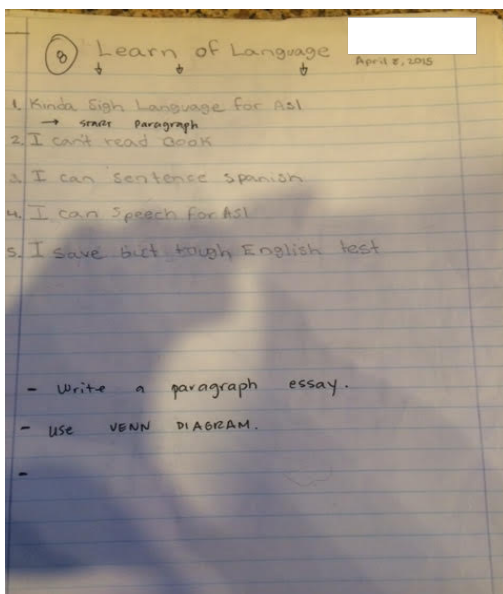 8 Learn of Language
April 8, 2015
1. Kinda Sigh Language for Asl
→ START Paragraph
2. I can't read Book
3. I can sentence spanish
4. I can Speech for Asl
5. I save but tough English test
- Write a paragraph essay.
- USE VENN DIAGRAM.
-